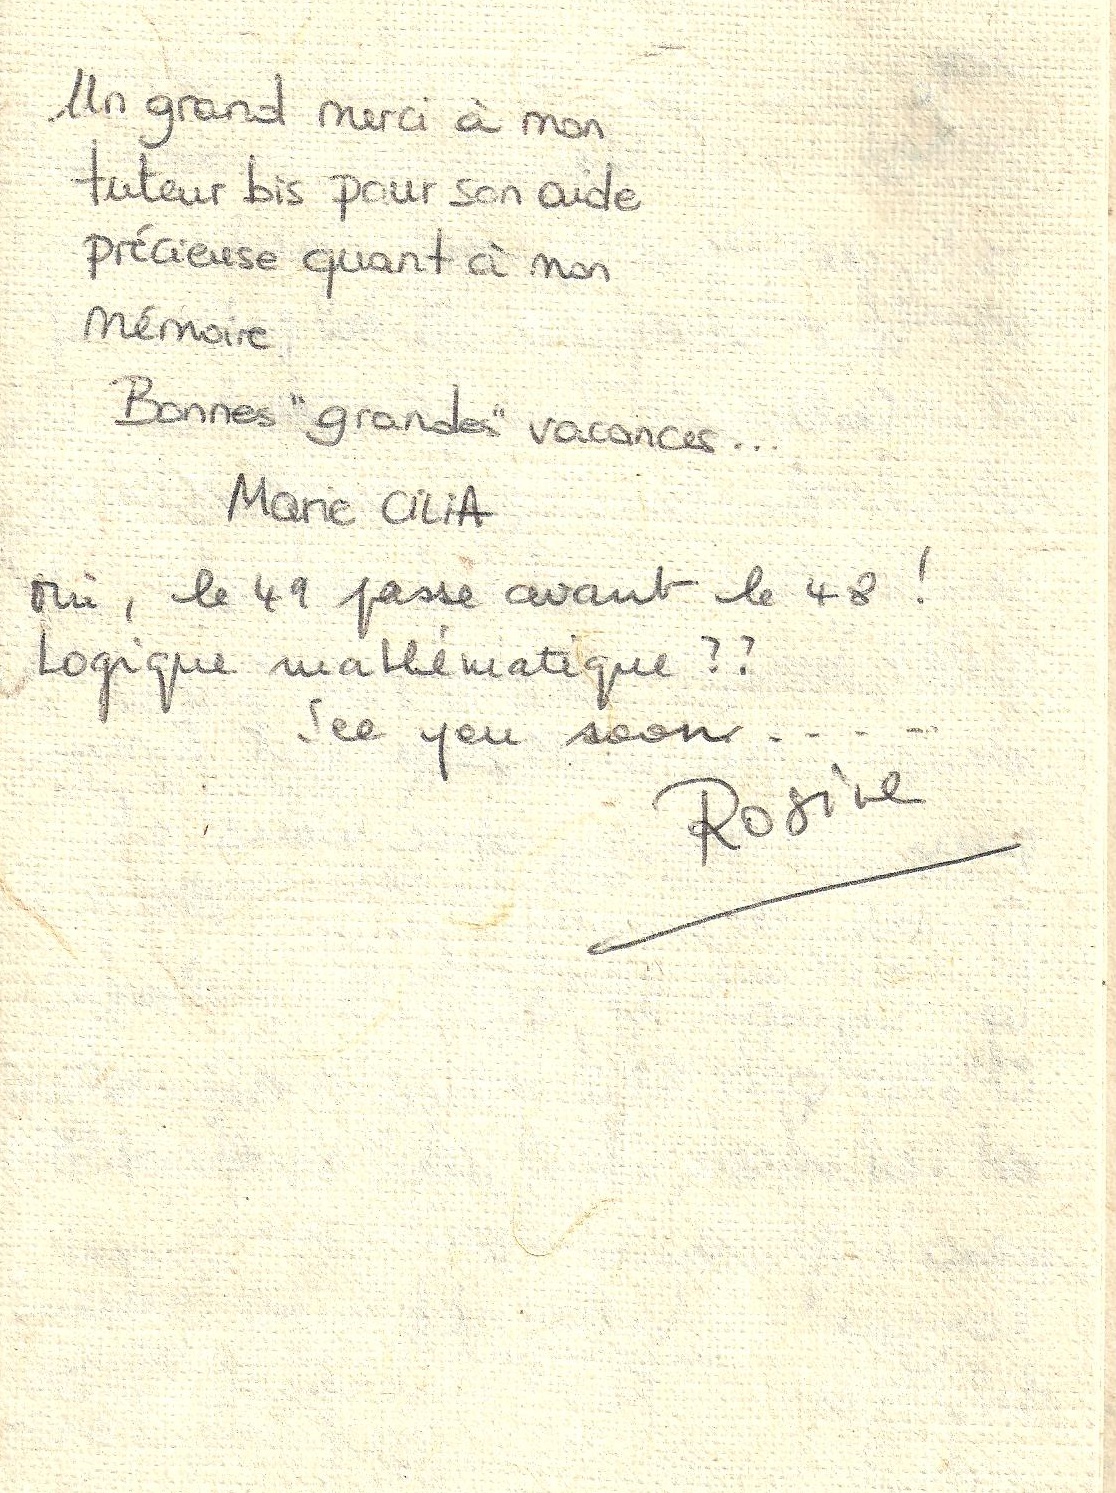 Un grand merci à mon
tuteur bis pour son aide
précieuse quant à mon
mémoire
Bonnes "grandes" vacances...
Marie CILIA
Oui, le 49 passe avant le 48 !
Logique mathématique ??
See you soon.....
Rosine